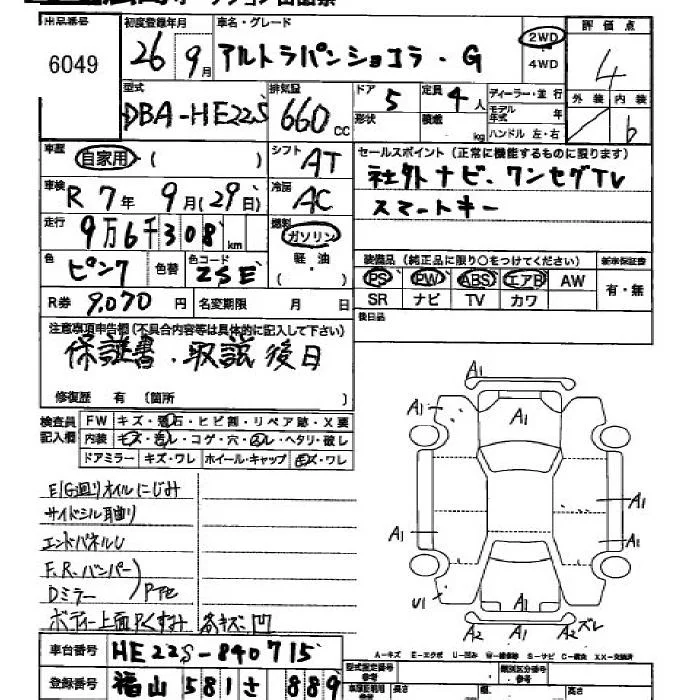 出品番号 初度登録年月 車名・グレード 評価点
6049 26年 9月 アルトラパンショコラ・G 2WD 4WD 4
型式 排気量 ドア 定員 ディーラー・並行 外装 内装
DBA-HE22S 660cc 5 4人 モデル年式 年 b
形状 積載 kg ハンドル 左・右
車歴 自家用 ( ) シフト AT セールスポイント (正常に機能するものに限ります)
車検 R 7年 9月(29日) 冷房 AC 社外ナビ・ワンセグTV
スマートキー
走行 9万6千308km 燃料 ガソリン 軽油 ( )
装備品 (純正品に限り○をつけてください) 新車保証書
色 ピンク 色替 色コード ZSE PS PW ABS エアB AW 有・無
R券 9,070円 名変期限 月 日 SR ナビ TV カワ
注意事項申告欄(不具合内容等は具体的に記入して下さい) 後日品
保証書・取説後日
修復歴 有 (箇所 )
検査員記入欄 FW キズ・飛石・ヒビ割・リペア跡・X要
内装 キズ・汚レ・コゲ・穴・スレ・ヘタリ・破レ
ドアミラー キズ・ワレ ホイール・キャップ キズ・ワレ
E/G廻りオイルにじみ
サイドシル曲り
エンドパネルU
F.R.バンパー
Dミラー PTC
ボディー上面Pくすみ 各キズ凹
A1 A1 A1 A1
A1 A1 A1 A1
U1 A1
A2 A1 A2 ズレ
A-キズ E-エクボ U-凹み W-補修跡 S-サビ C-腐食 XX-交換済
車台番号 HE22S-840715
型式指定番号 類別区分番号
登録番号 福山 581 さ 889
長さ 高さ